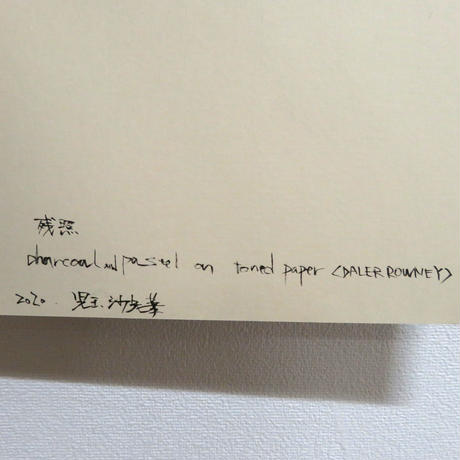 残照
charcoal and pastel on toned paper <DALER ROWNEY>
2020. 児玉沙矢華